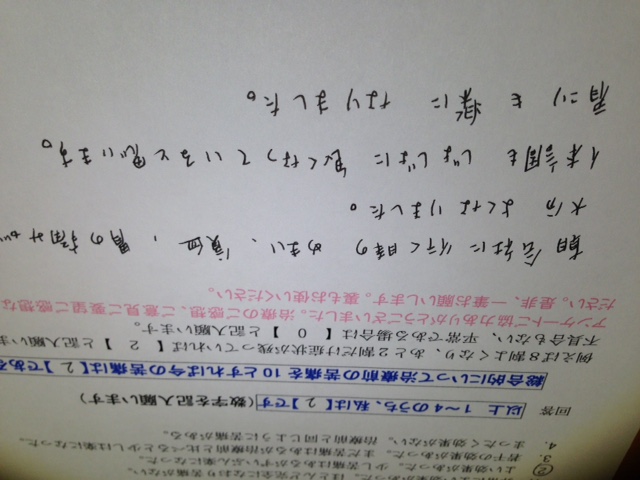 ② よい効果があった。 少し苦痛はあるがずいぶん楽になった。
3. 若干の効果があった。 まだ苦痛はあるが治療前と比べると少しは楽になった。
4. まったく効果がない。 治療前と同じように苦痛がある。
回答 以上 1～4のうち、私は【 2 】です (数字を記入願います)
総合的にいって治療前の苦痛を 10 とすれば今の苦痛は【 2 】である
例えば8割よくなり、あと2割だけ症状が残っていれば【 2 】と記入願います
不具合もない、平常である場合は【 0 】と記入願います。
アンケートご協力ありがとうございました。治療のご感想、ご意見ご要望ご感想な
ださい。是非、一筆お願いします。裏もお使いください。
朝会社に行く時の めまい、貧血、胃の痛みが
大分 よくなりました。
体調も じょじょに 良くなっていると思います。
肩こりも 楽に なりました。